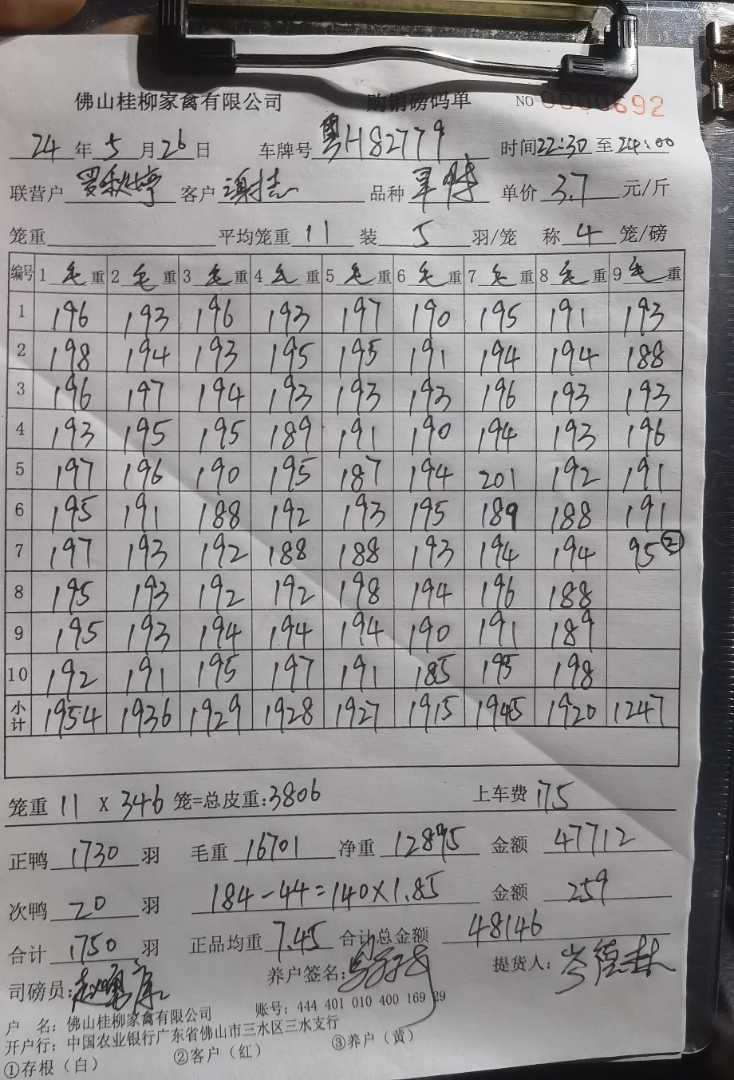 佛山桂柳家禽有限公司 购销磅码单 NO 0000692
24年5月26日 车牌号粤H82779 时间22:30至24:00
联营户罗秋婷 客户 品种 单价3.7元/斤
笼重 平均笼重11装5羽/笼 称4笼/磅
编号 1毛重 2毛重 3毛重 4毛重 5毛重 6毛重 7毛重 8毛重 9毛重
1 196 193 196 193 197 190 195 191 193
2 198 194 193 195 195 191 194 194 188
3 196 197 194 193 193 193 196 193 193
4 193 195 195 189 191 190 194 193 196
5 197 196 190 195 187 194 201 192 191
6 195 191 188 192 193 195 189 188 191
7 197 193 192 188 188 193 194 194 95②
8 195 193 192 192 198 194 196 188
9 195 193 194 194 194 190 191 189
10 192 191 195 197 191 185 195 198
小计 1954 1936 1929 1928 1927 1915 1945 1920 1247
笼重11X346笼=总皮重:3806 上车费175
正鸭1730羽 毛重16701 净重12895 金额47712
次鸭20羽 184-44=140×1.85 金额259
合计1750羽 正品均重7.45 合计总金额48146
司磅员: 养户签名: 提货人:
户 名:佛山桂柳家禽有限公司 账号:444 401 010 400 169 29
开户行:中国农业银行广东省佛山市三水区三水支行
①存根(白) ②客户(红) ③养户(黄)